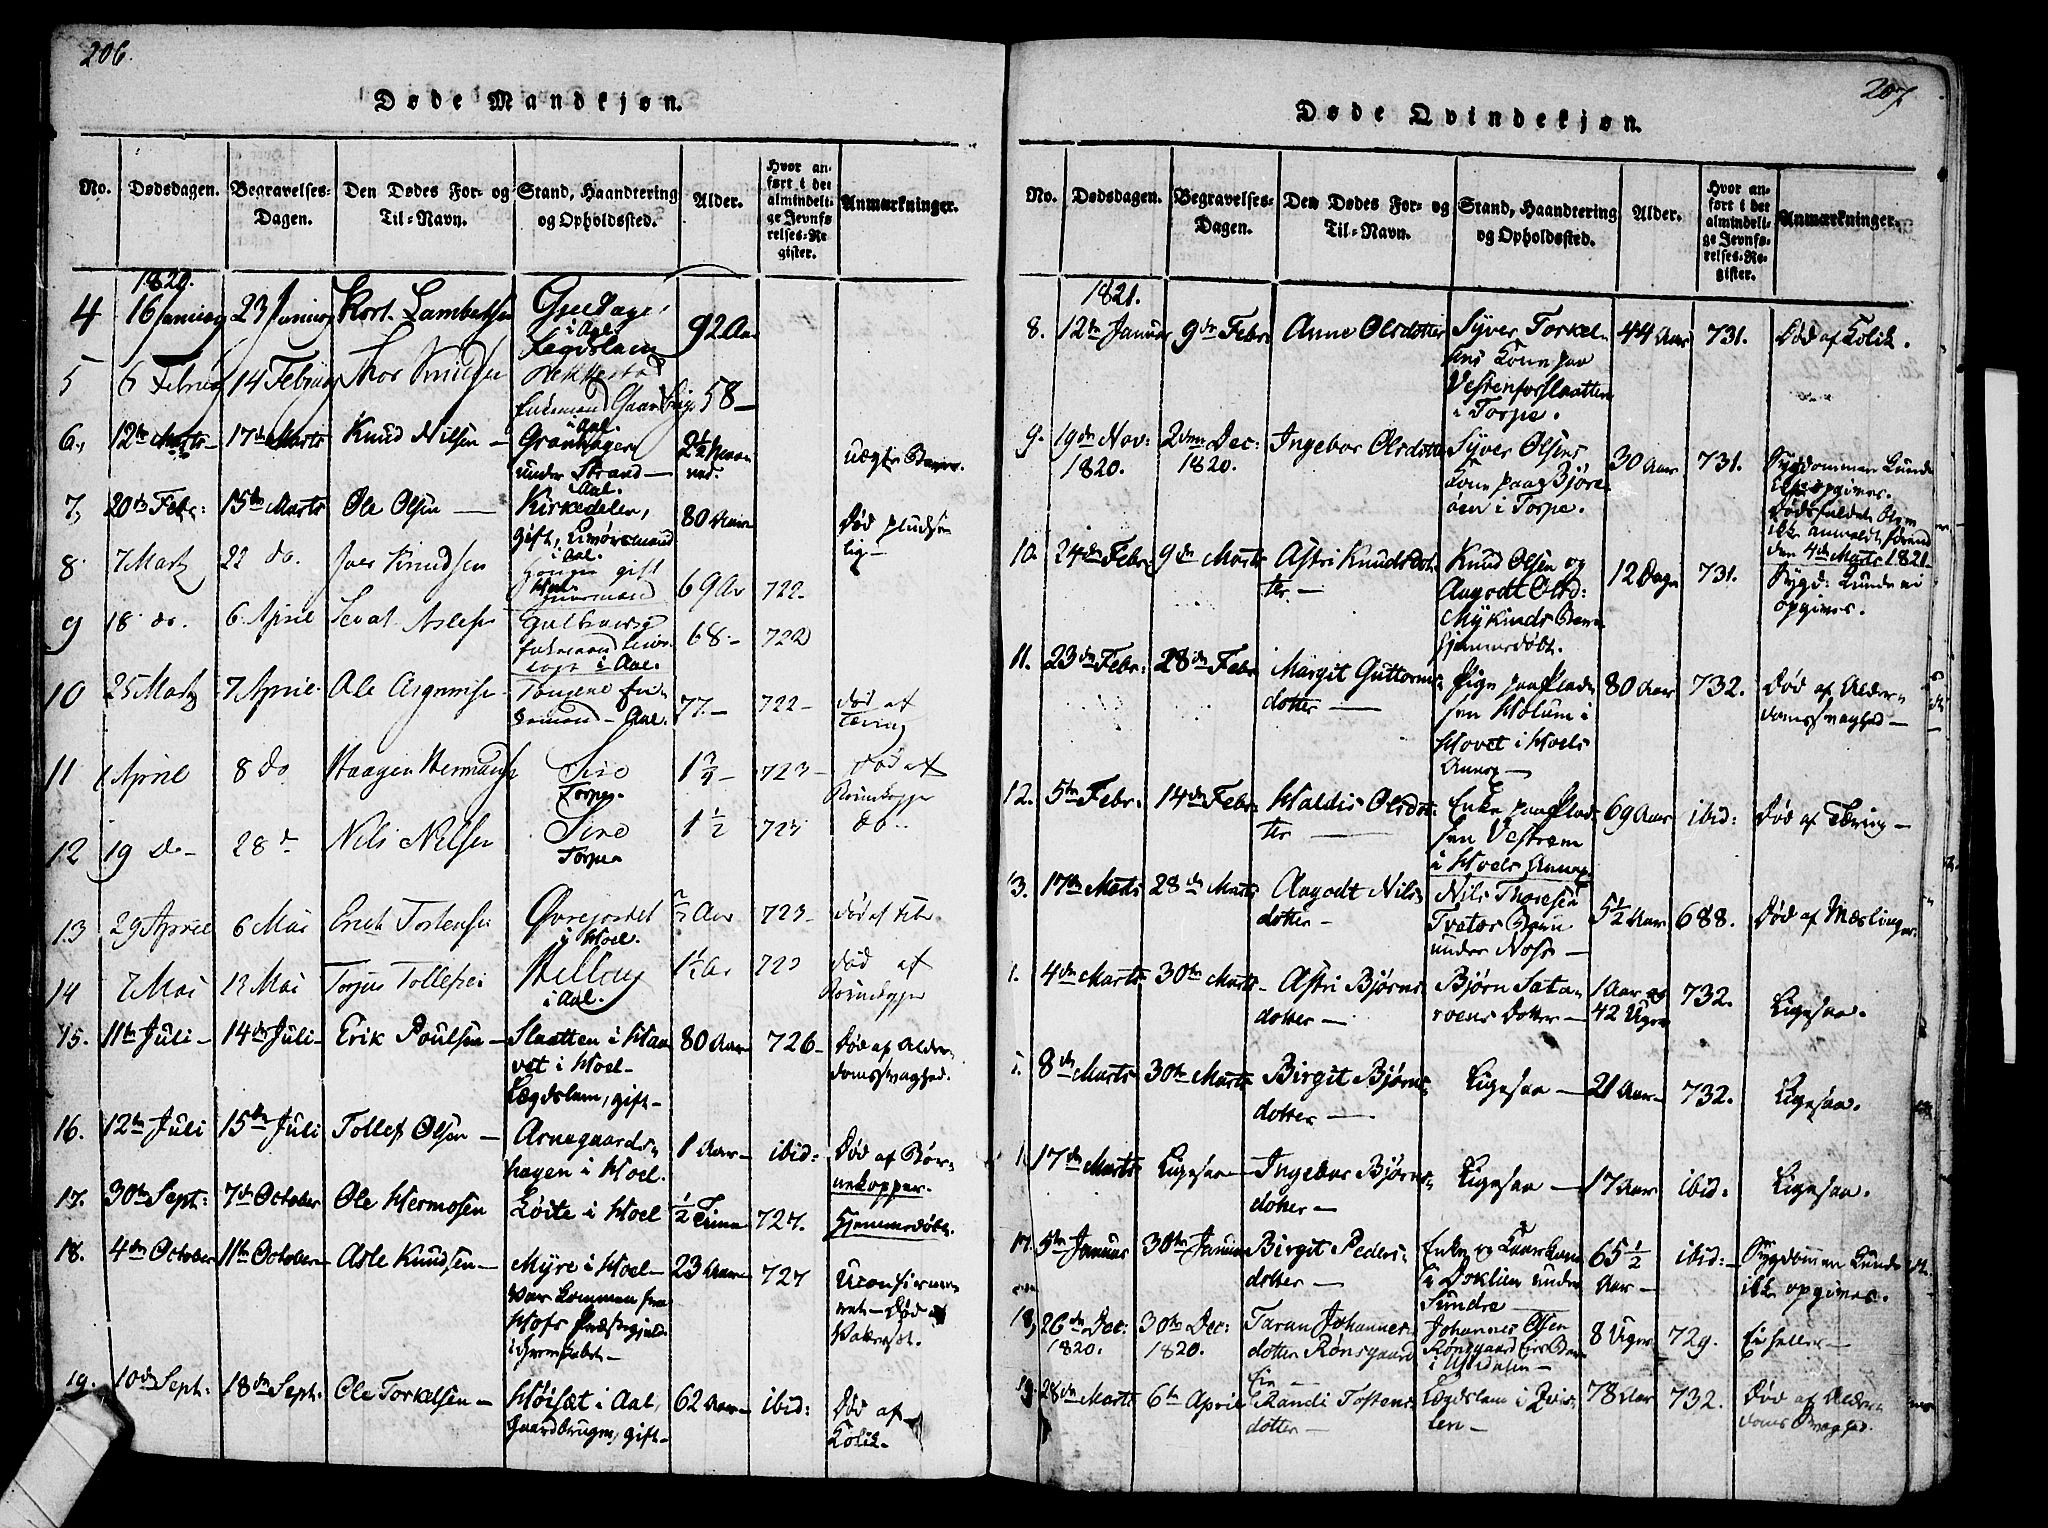 206.
Døde Mandkjøn.
No. Dødsdagen. Begravelses-Dagen. Den Dødes For- og Til-Navn. Stand, Haandtering og Opholdssted. Alder. Hvor anført i det almindelige Jevnførelses-Register. Anmærkninger.
1820.
4 16 Januar 23 Januar Kort Lambertsen i Aal Lægdslem 92 Aar
5 6 Februar 14 Februar Thor Knudsen Enkemand i Aal. 58 –
6, 12te Marts – 17de Marts Knud Nilsen – Granhagen
under Strand – Aal. uægte Barn.
7, 20de Febr: 15de Marts Ole Olsen — Kirkedelen,
gift, i Aal. 80 Aar Død pludse
lig –
8 7 Marts 22 do. Iver Knudsen gift 69 Ar 722
9 18 do. 6 April Sevat Aslesen Enkemand i Aal. 68 – 722
10 25 Marts 7 April Ole Enkemand – Aal. 77. – 722 – død af
Tæring
11 1 April 8 do Haagen Hermandsen Sire
Torpe. 1 723 – død af
Børnekopper
12 19 do – 28 d Nils Nilsen Sire
Torpe 1 1/2 723 do..
13 29 April 6 Mai Erich Torstensen Øvrejordet
i Hoel. Aar 723 – død af
14 7 Mai 13 Mai Torjus Tollefsen
i Aal. 1 1/2 Ar 723 død af
Børnekopper
15. 11te Juli – 14de Juli – Erik Poulsen – Slaatten i Haa
vet i Hoel –
Lægdslem, gift – 80 Aar – 726 – Død af Alder
domssvaghed.
16. 12te Juli 15de Juli Tollef Olsen – Arnegaards-
hagen i Hoel. 1 Aar – ibid: Død af Bør-
nekopper.
17. 30te Sept: 7de October Ole Hermosen Løite i Hoel 1/2 Time 727. Hjemmedøbt.
18. 4de October 11te October – Asle Knudsen – Myre i Hoel –
var kommen fra
Hofs Præstegjeld
23 Aar – 727 Uconfirme
ret – Død
19. 10de Sept: 18de Sept: Ole Torkelsen – Høisæt i Aal,
Gaardbruger, gift – 62 Aar – ibid: Død af
Kolik –
207.
Døde Qvindekjøn.
No. Dødsdagen. Begravelses-Dagen. Den Dødes For- og Til-Navn. Stand, Haandtering og Opholdssted. Alder. Hvor anført i det almindelige Jevnførelses-Register. Anmærkninger.
1821.
8. 12te Januar 9de Febr: Anne Olsdotter Syver Torkel-
sens Kone paa
Vestenforslaatten
i Torpe. 44 Aar 731. Død af Kolik.
9. 19de Nov:
1820. 2den Dec:
1820. Ingebor Olsdotter Syver Olsens
Kone paa Bjøre-
øen i Torpe. 30 Aar 731. Sygdommen kunde
ikke opgives.
Dødsfaldet blev
ikke anmeldt førend
den 4de Marts 1821.
10. 24de Febr: 9de Marts Astri Knudsdot
ter. – Knud Olsen og
Aagodt Olsd:
Myklunds Barn
hjemmedøbt. 12 Dage 731. Sygd: kunde ei
opgives.
11. 23de Febr: 28de Febr: Margit Guttorms
dotter — Pige paa Plad
sen Holum i
Hovet i Hoels
Annex – 80 Aar 732. Død af Alder-
domssvaghed –
12. 5te Febr: 14de Febr: Haldis Olsdot
ter — Enke paa Plad
sen Vestrem
i Hoels Annex. 69 Aar ibid: Død af Tæring –
3. 17de Marts 28de Marts Aagodt Nils-
dotter – Nils Thoresen
Tvetos Barn
under Noss – 5 1/2 Aar 688. Død af Mæslinger.
1. 4de Marts 30te Marts – Astri Bjørns-
dotter – Bjørn Sata-
røens Dotter – 1 Aar og
42 Uger 732. Ligesaa.
8de Marts 30te Marts Birgit Bjørns
dotter —. Ligesaa – 21 Aar – 732. Ligesaa.
17de Marts Ligesaa – Ingebor Bjørns-
dotter – Ligesaa – 17 Aar ibid: Ligesaa.
17. 5te Januar 30te Januar Birgit Peders-
dotter – Enke og
Doklien under
Sundre – 65 1/2
Aar – ibid: – Sygdommen kunde
ikke opgives.
18, 26de Dec:
1820. 30te Dec:
1820. Taran Johannes-
dotter Rønsgaard Johannes Olsen
Rønsgaard Barn
8 Uger 729. Ei heller –
19. 28de Marts 6te April Randi Tostens
dotter – Lægdslem 78 Aar 732. Død af Alder-
doms Svaghed.